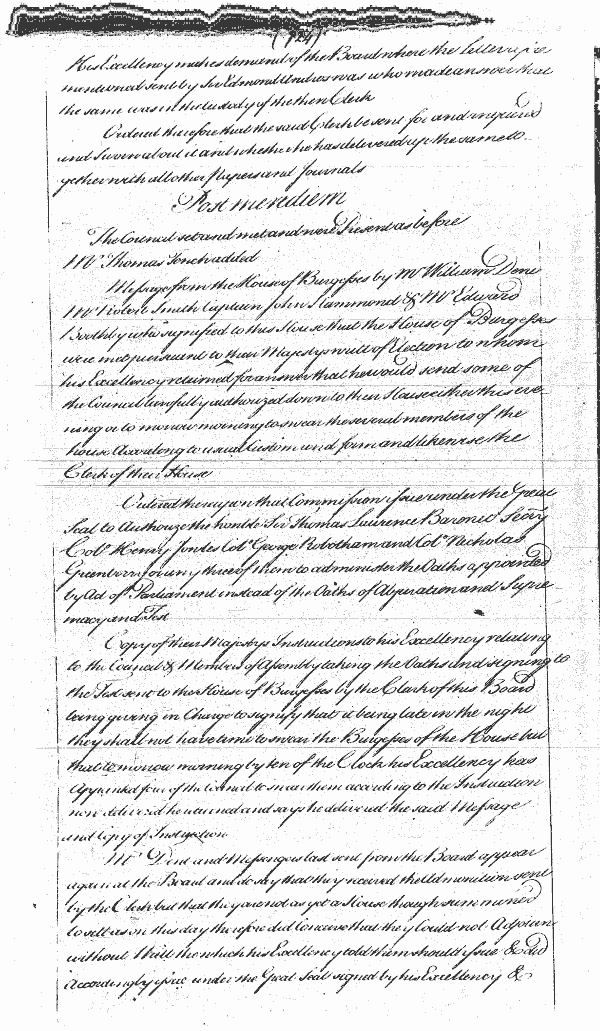 (124)
His Excellency makes demand of the Board where the letter
mentioned sent by Sir Edmond Andros was who made answer that
the same was in the Custody of the then Clerk
Ordered therefore that the said Clerk be sent for and inquired
and Sworn about it and whether he has delivered up the same to-
gether with all other Papers and Journals
Post meridiem
The Council sat and met and were Present as before
Mr Thomas Tench added
Message from the House of Burgesses by Mr William Dent
Mr Robert Smith Captain John Hammond & Mr Edward
Boothby who signified to this House that the House of Burgesses
were met pursuant to their Majestys writt of Election to whom
his Excellency returned for answer that he would send some of
the Council lawfully authorized down to their House either this eve-
ning or to morrow morning to swear the several members of the
house According to usual Custom and form and likewise the
Clerk of their House
Ordered thereupon that Commission issue under the Great
Seal to Authorize the honble Sir Thomas Laurence Baronet Secry
Colo Henry Jowles Colo George Robotham and Colo Nicholas
Greenberry or any three of them to administer the Oaths appointed
by Act of Parliament instead of the Oaths of Abjuration and Supre-
macy and Test
Copy of their Majestys Instructions to his Excellency relating
to the Council & Members of Assembly taking the Oaths and signing to
the Test sent to the House of Burgesses by the Clerk of this Board
being giving in Charge to signify that it being late in the night
they shall not have time to swear the Burgesses of the House but
that to morrow morning by ten of the Clock his Excellency has
Appointed four of the Council to swear them according to the Instruction
now delivered he returned and says he delivered the said Message
and Copy of Instruction
Mr Dent and Messengers last sent from the Board appear
again at the Board and do say that they received the Admonition sent
by the Clerk but that they are not as yet a House though summoned
to sitt as on this day therefore did Conceive that they Could not Adjourn
without Writt the which his Excellency told them should issue & did
Accordingly issue under the Great Seal signed by his Excellency &